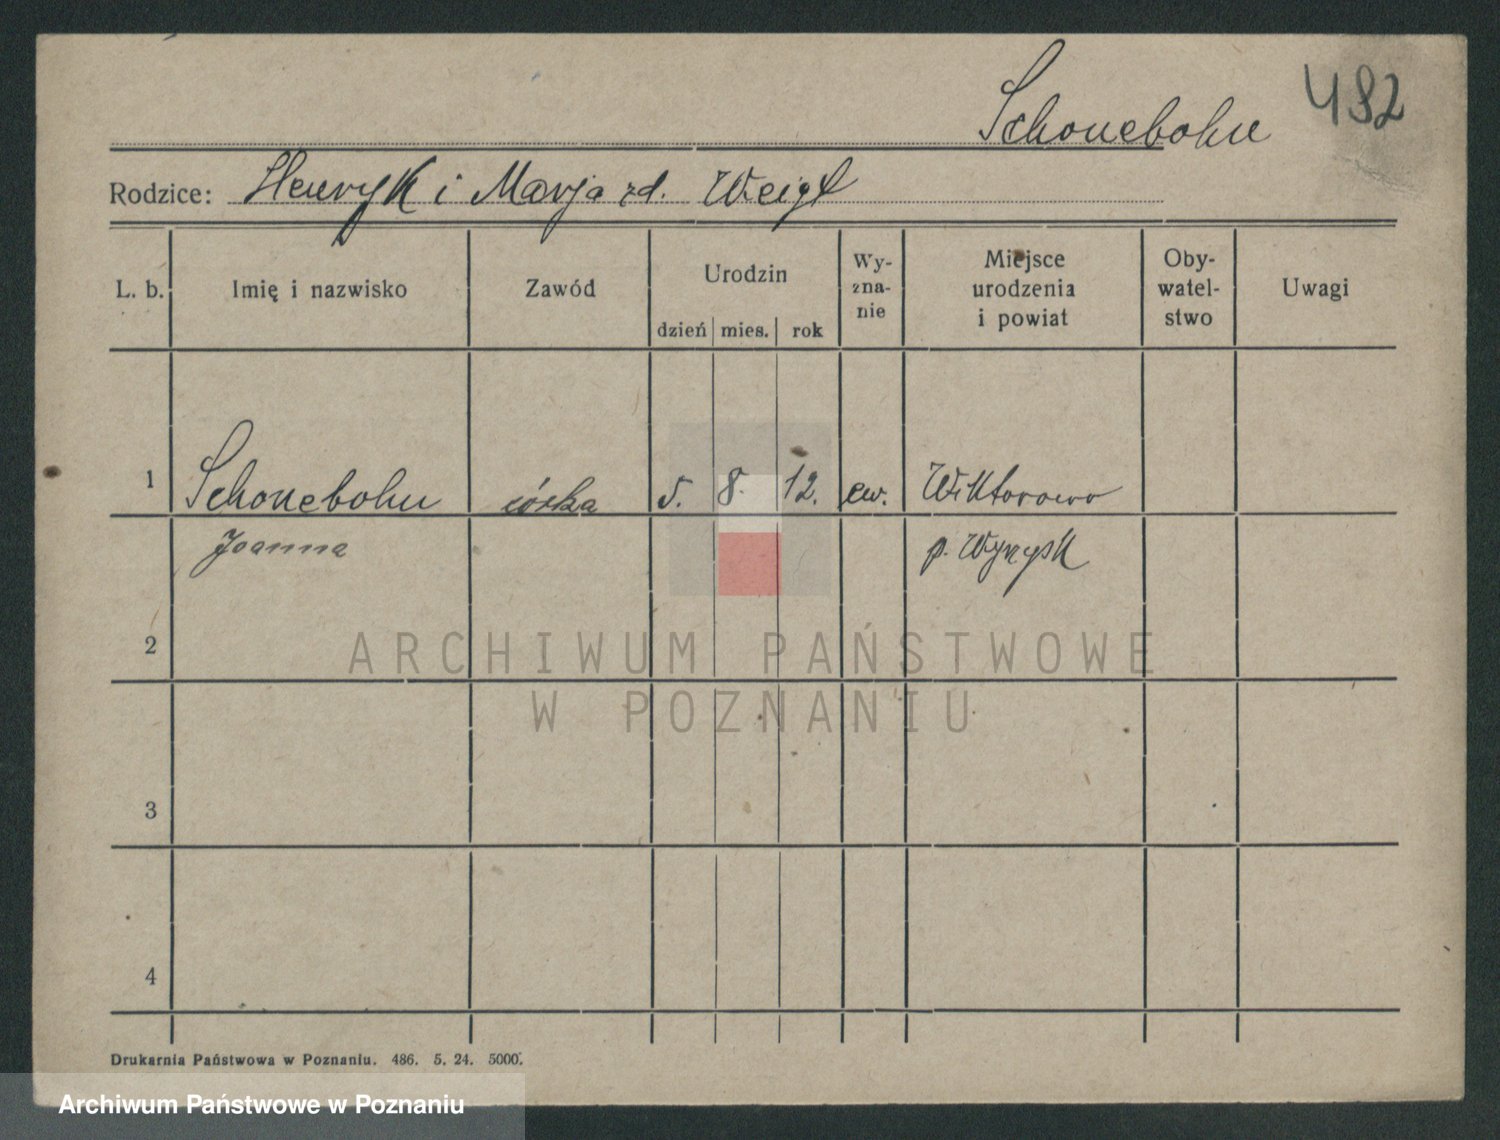 482
Schonebohn
Rodzice: Henryk i Marja zd. Weigt
L. b. Imię i nazwisko Zawód Urodzin dzień mies. rok Wy-zna-nie Miejsce urodzenia i powiat Oby-watel-stwo Uwagi
1 Schonebohn córka 5. 8. 12. ew. Wiktorowo
Joanna p. Wyrzysk
2
ARCHIWUM PAŃSTWOWE
W POZNANIU
3
4
Drukarnia Państwowa w Poznaniu. 486. 5. 24. 5000.
Archiwum Państwowe w Poznaniu